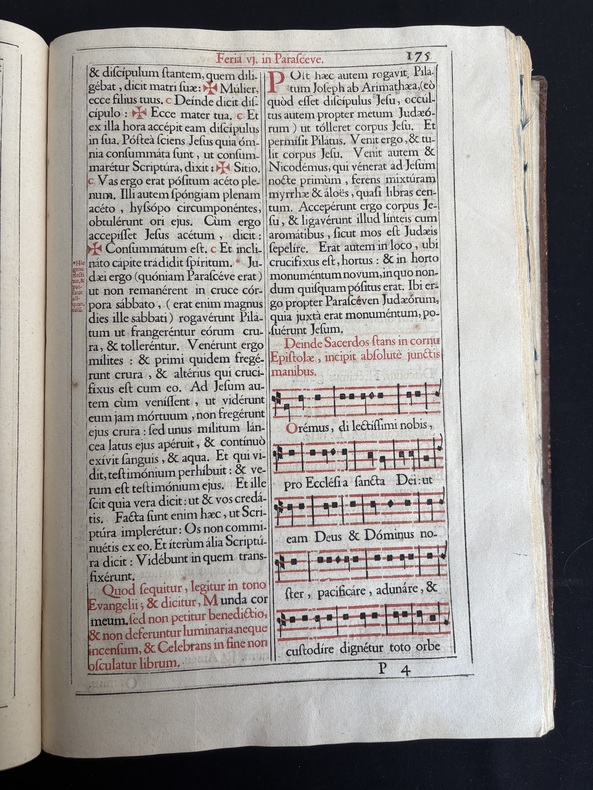 Feria vj. in Parasceve.
175
& discípulum stantem, quem dili-
gébat, dicit matri suæ: ✠ Múlier,
ecce filius tuus. c Deínde dicit dis-
cipulo: ✠ Ecce mater tua. c Et
ex illa hora accépit eam discípulus
in sua. Póstea sciens Jesus quia óm-
nia consummáta sunt, ut consum-
marétur Scriptúra, dixit: ✠ Sitio.
c Vas ergo erat pósitum acéto ple-
num. Illi autem spóngiam plenam
acéto, hyssópo circumponéntes,
obtulérunt ori ejus. Cùm ergo
accepísset Jesus acétum, dicit:
✠ Consummátum est. c Et incli-
náto capite trádidit spíritum. * Ju-
dæi ergo (quóniam Parascéve erat)
ut non remanérent in cruce cór-
pora sábbato, (erat enim magnus
dies ille sabbati) rogavérunt Pila-
tum ut frangeréntur eórum cru-
ra, & tolleréntur. Venérunt ergo
milites: & primi quidem fregé-
runt crura, & altérius qui cruci-
fixus est cum eo. Ad Jesum au-
tem cùm veníssent, ut vidérunt
eum jam mórtuum, non fregérunt
ejus crura: sed unus militum lán-
cea latus ejus apéruit, & contínuò
exivit sanguis, & aqua. Et qui vi-
dit, testimónium perhíbuit: & ve-
rum est testimónium ejus. Et ille
scit quia vera dicit: ut & vos credá-
tis. Facta sunt enim hæc, ut Scri-
ptúra implerétur: Os non commi-
nuétis ex eo. Et íterùm ália Scriptú-
ra dicit: Vidébunt in quem trans-
fixérunt.
Quod sequitur, legitur in tono
Evangelii; & dicitur, Munda cor
meum. sed non petitur benedictio,
& non deferuntur luminaria, neque
incensum, & Celebrans in fine non
osculatur librum.
POst hæc autem rogavit Pila-
tum Joseph ab Arimathæa, (eò
quòd esset discípulus Jesu, occúl-
tus autem propter metum Judæó-
rum) ut tólleret corpus Jesu. Et
permisit Pilátus. Venit ergo, & tu-
lit corpus Jesu. Venit autem &
Nicodémus, qui vénerat ad Jesum
nocte primùm, ferens mixtúram
myrrhæ & áloës, quasi libras cen-
tum. Accepérunt ergo corpus Je-
su, & ligavérunt illud línteis cum
aromátibus, sicut mos est Judæis
sepelíre. Erat autem in loco, ubi
crucifixus est, hortus: & in horto
monuméntum novum, in quo non-
dum quisquam pósitus erat. Ibi er-
go propter Parascéven Judæórum,
quia juxta erat monuméntum, po-
suérunt Jesum.
Deinde Sacerdos stans in cornu
Epistolæ, incipit absolutè junctis
manibus.
Orémus, di lectíssimi nobis,
pro Ecclési a sancta Dei: ut
eam Deus & Dóminus no-
ster, pacificáre, adunáre, &
custodíre dignétur toto orbe
P 4